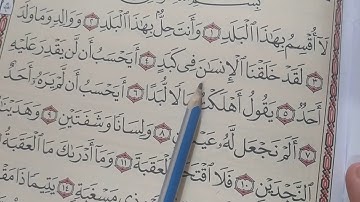 لَآ أُقْسِمُ بِهَٰذَا ٱلْبَلَدِ ١ وَأَنتَ حِلٌّۢ بِهَٰذَا ٱلْبَلَدِ ٢ وَوَالِدٍ وَمَا وَلَدَ
٣ لَقَدْ خَلَقْنَا ٱلْإِنسَٰنَ فِى كَبَدٍ ٤ أَيَحْسَبُ أَن لَّن يَقْدِرَ عَلَيْهِ
أَحَدٌ ٥ يَقُولُ أَهْلَكْتُ مَالًا لُّبَدًا ٦ أَيَحْسَبُ أَن لَّمْ يَرَهُۥٓ أَحَدٌ
٧ أَلَمْ نَجْعَل لَّهُۥ عَيْنَيْنِ ٨ وَلِسَانًا وَشَفَتَيْنِ ٩ وَهَدَيْنَٰهُ
ٱلنَّجْدَيْنِ ١٠ فَلَا ٱقْتَحَمَ ٱلْعَقَبَةَ ١١ وَمَآ أَدْرَىٰكَ مَا ٱلْعَقَبَةُ
ذِى مَسْغَبَةٍ ١٤ يَتِيمًا ذَا